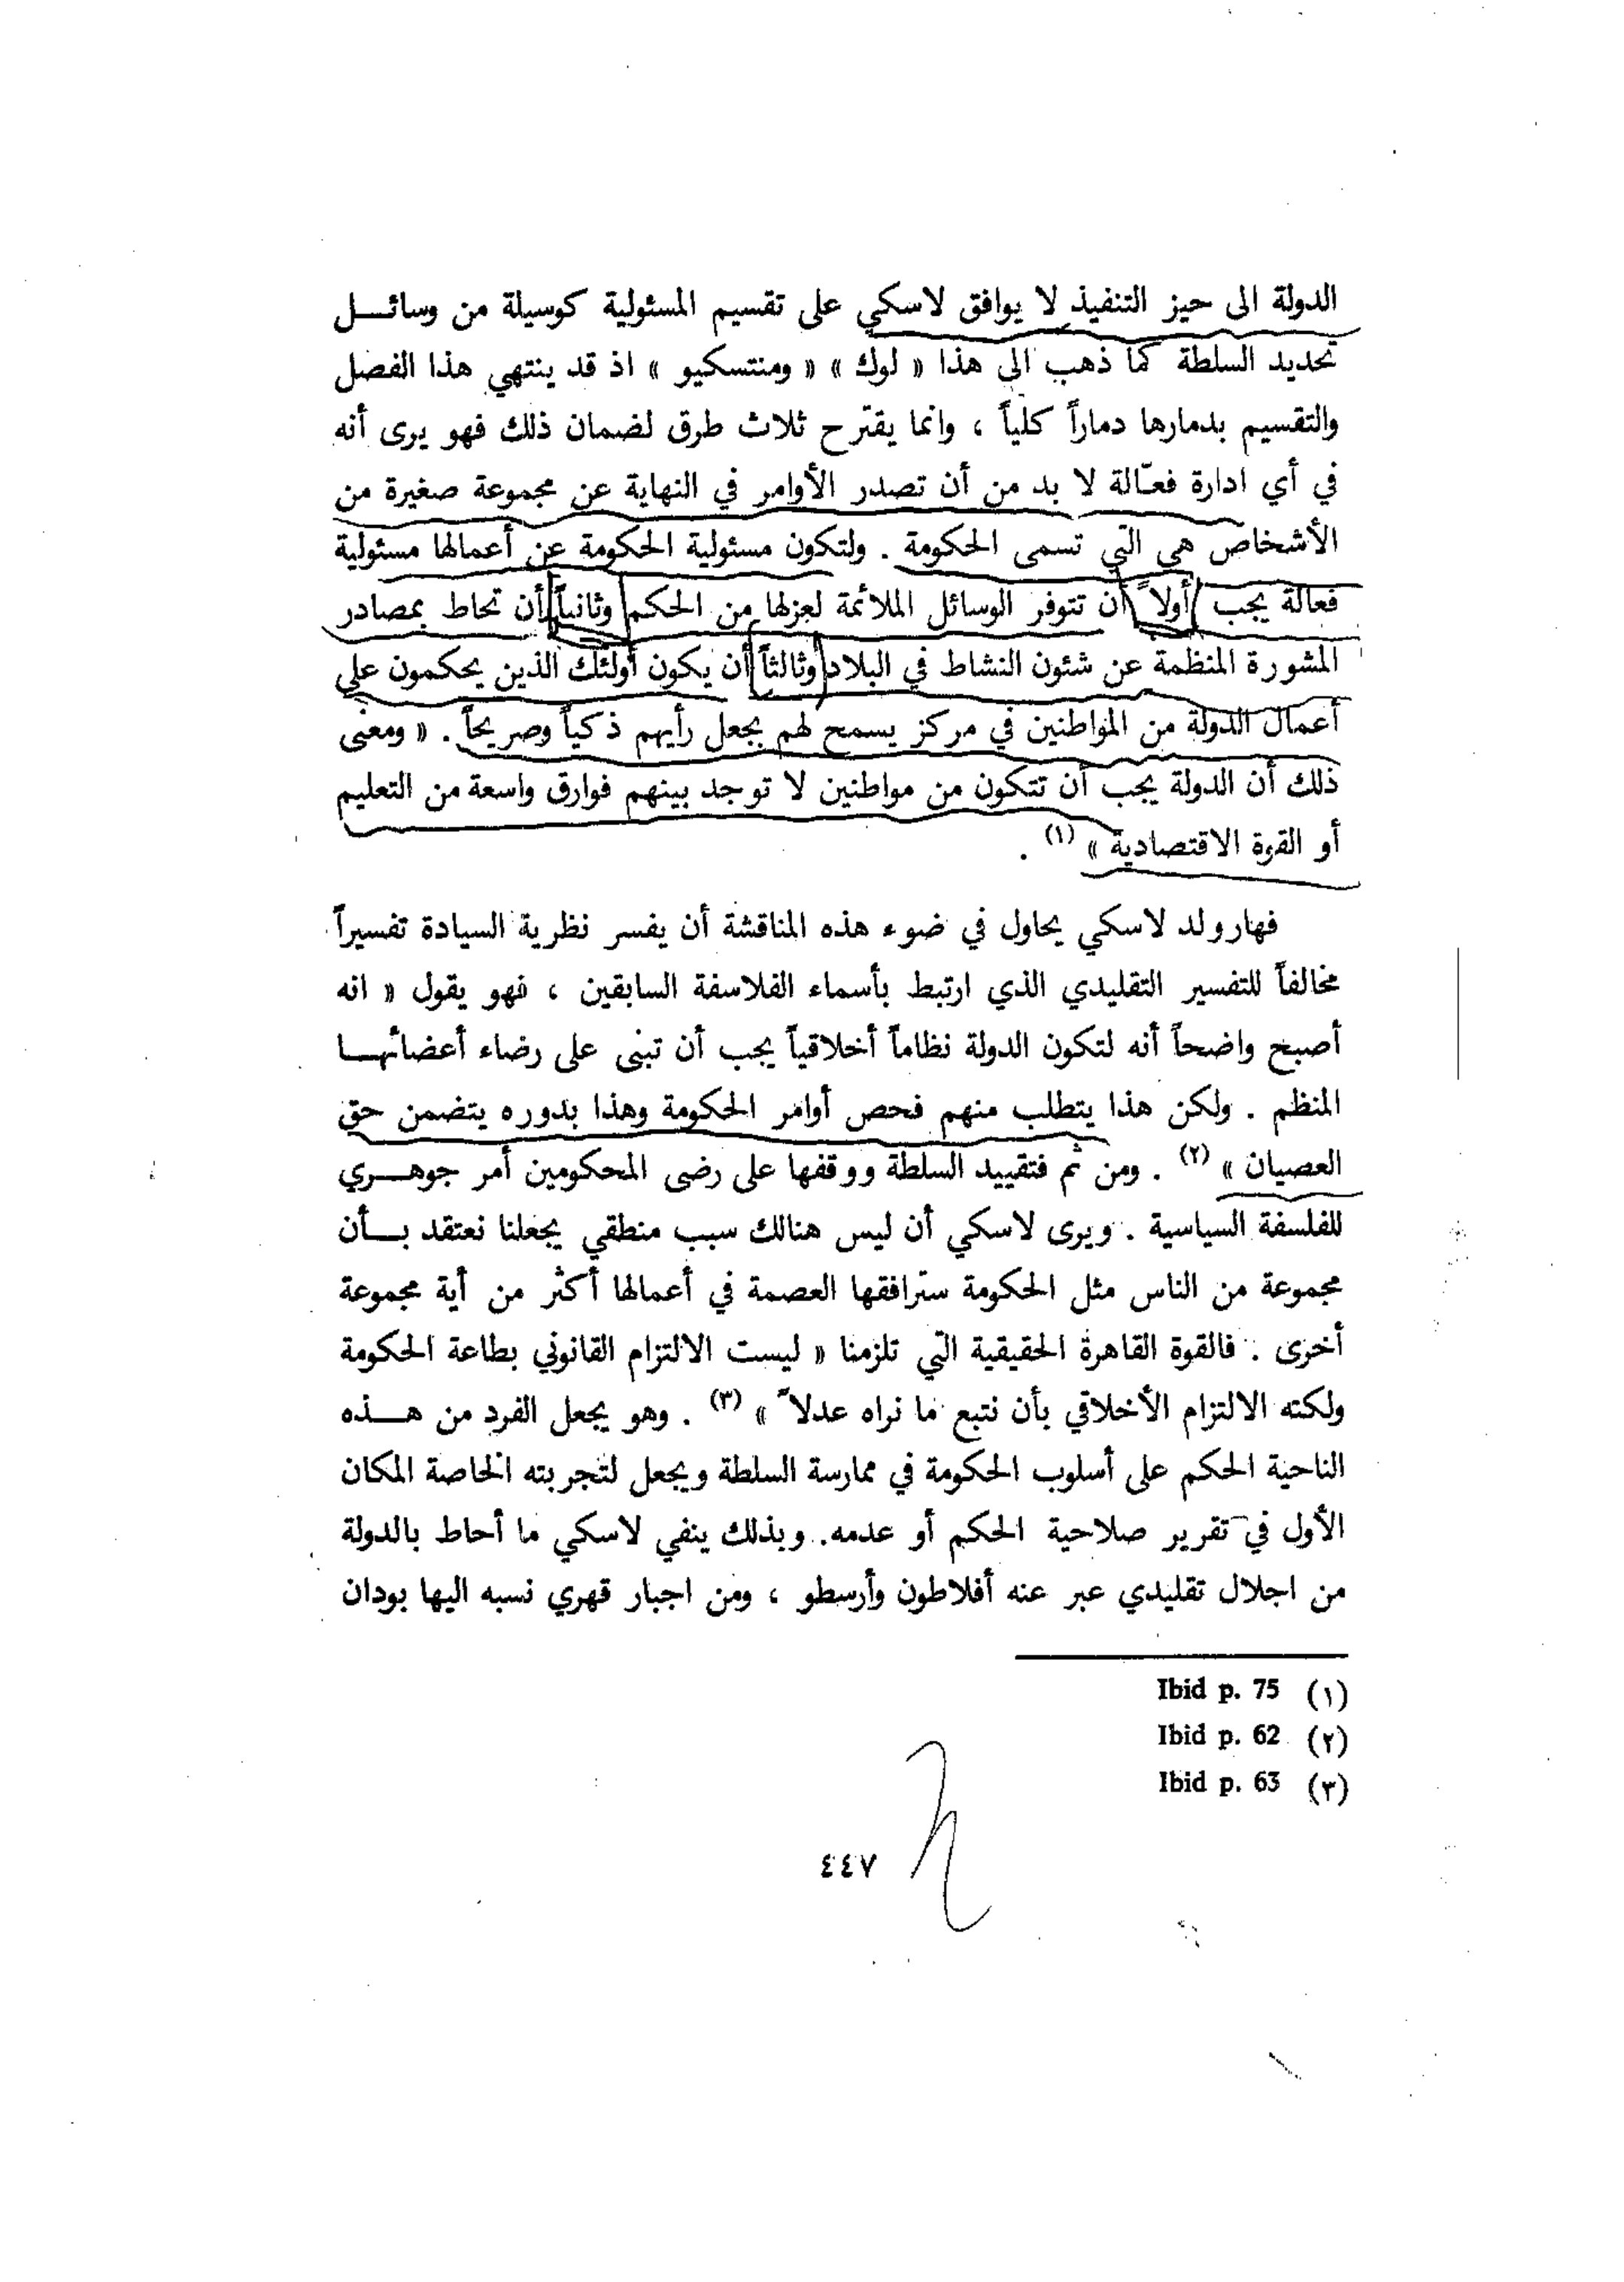 الدولة الى حيز التنفيذ لا يوافق لاسكي على تقسيم المسئولية كوسيلة من وسائـــل
تحديد السلطة كما ذهب الى هذا « لوك » « ومنتسكيو » اذ قد ينتهي هذا الفصل
والتقسيم بدمارها دماراً كلياً ، وانما يقترح ثلاث طرق لضمان ذلك فهو يرى أنه
في أي ادارة فعـّالة لا بد من أن تصدر الأوامر في النهاية عن مجموعة صغيرة من
الأشخاص هي التي تسمى الحكومة . ولتكون مسئولية الحكومة عن أعمالها مسئولية
فعالة يجب أولاً أن تتوفر الوسائل الملائمة لعزلها من الحكم وثانياً أن تحاط بمصادر
المشورة المنظمة عن شئون النشاط في البلاد وثالثاً أن يكون أولئك الذين يحكمون على
أعمال الدولة من المواطنين في مركز يسمح لهم بجعل رأيهم ذكياً وصريحاً . « ومعنى
ذلك أن الدولة يجب أن تتكون من مواطنين لا توجد بينهم فوارق واسعة من التعليم
أو القوة الاقتصادية » (١) .
فهارولد لاسكي يحاول في ضوء هذه المناقشة أن يفسر نظرية السيادة تفسيراً
مخالفاً للتفسير التقليدي الذي ارتبط بأسماء الفلاسفة السابقين ، فهو يقول « انه
أصبح واضحاً أنه لتكون الدولة نظاماً أخلاقياً يجب أن تبنى على رضاء أعضائهــا
المنظم . ولكن هذا يتطلب منهم فحص أوامر الحكومة وهذا بدوره يتضمن حق
العصيان » (٢) . ومن ثم فتقييد السلطة ووقفها على رضى المحكومين أمر جوهـــري
للفلسفة السياسية . ويرى لاسكي أن ليس هنالك سبب منطقي يجعلنا نعتقد بــأن
مجموعة من الناس مثل الحكومة سترافقها العصمة في أعمالها أكثر من أية مجموعة
أخرى . فالقوة القاهرة الحقيقية التي تلزمنا « ليست الالتزام القانوني بطاعة الحكومة
ولكنه الالتزام الأخلاقي بأن نتبع ما نراه عدلاً » (٣) . وهو يجعل الفرد من هــذه
الناحية الحكم على أسلوب الحكومة في ممارسة السلطة ويجعل لتجربته الخاصة المكان
الأول في تقرير صلاحية الحكم أو عدمه. وبذلك ينفي لاسكي ما أحاط بالدولة
من اجلال تقليدي عبر عنه أفلاطون وأرسطو ، ومن اجبار قهري نسبه اليها بودان
(١) Ibid p. 75
(٢) Ibid p. 62
(٣) Ibid p. 63
٤٤٧